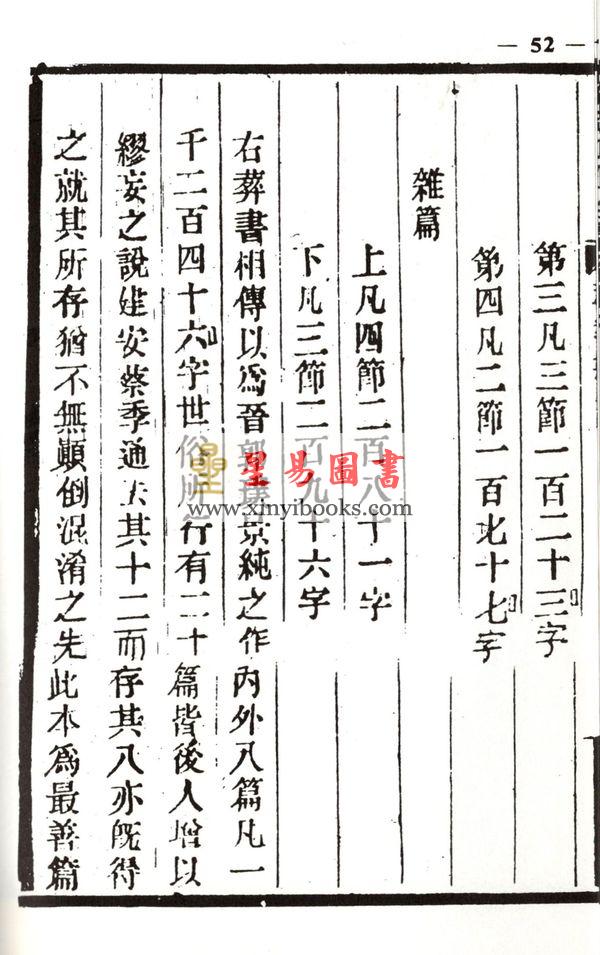 — 52 —
第三凡三節一百二十三字
第四凡二節一百九十七字
雜篇
上凡四節二百八十一字
下凡三節二百九十六字
右葬書相傳以爲晉郭璞景純之作內外八篇凡一
千二百四十六字世俗所行有二十篇皆後人增以
繆妄之說建安蔡季通去其十二而存其八亦旣得
之就其所存猶不無顚倒混淆之先此本爲最善篇
星 星易圖書
www.xinyibooks.com